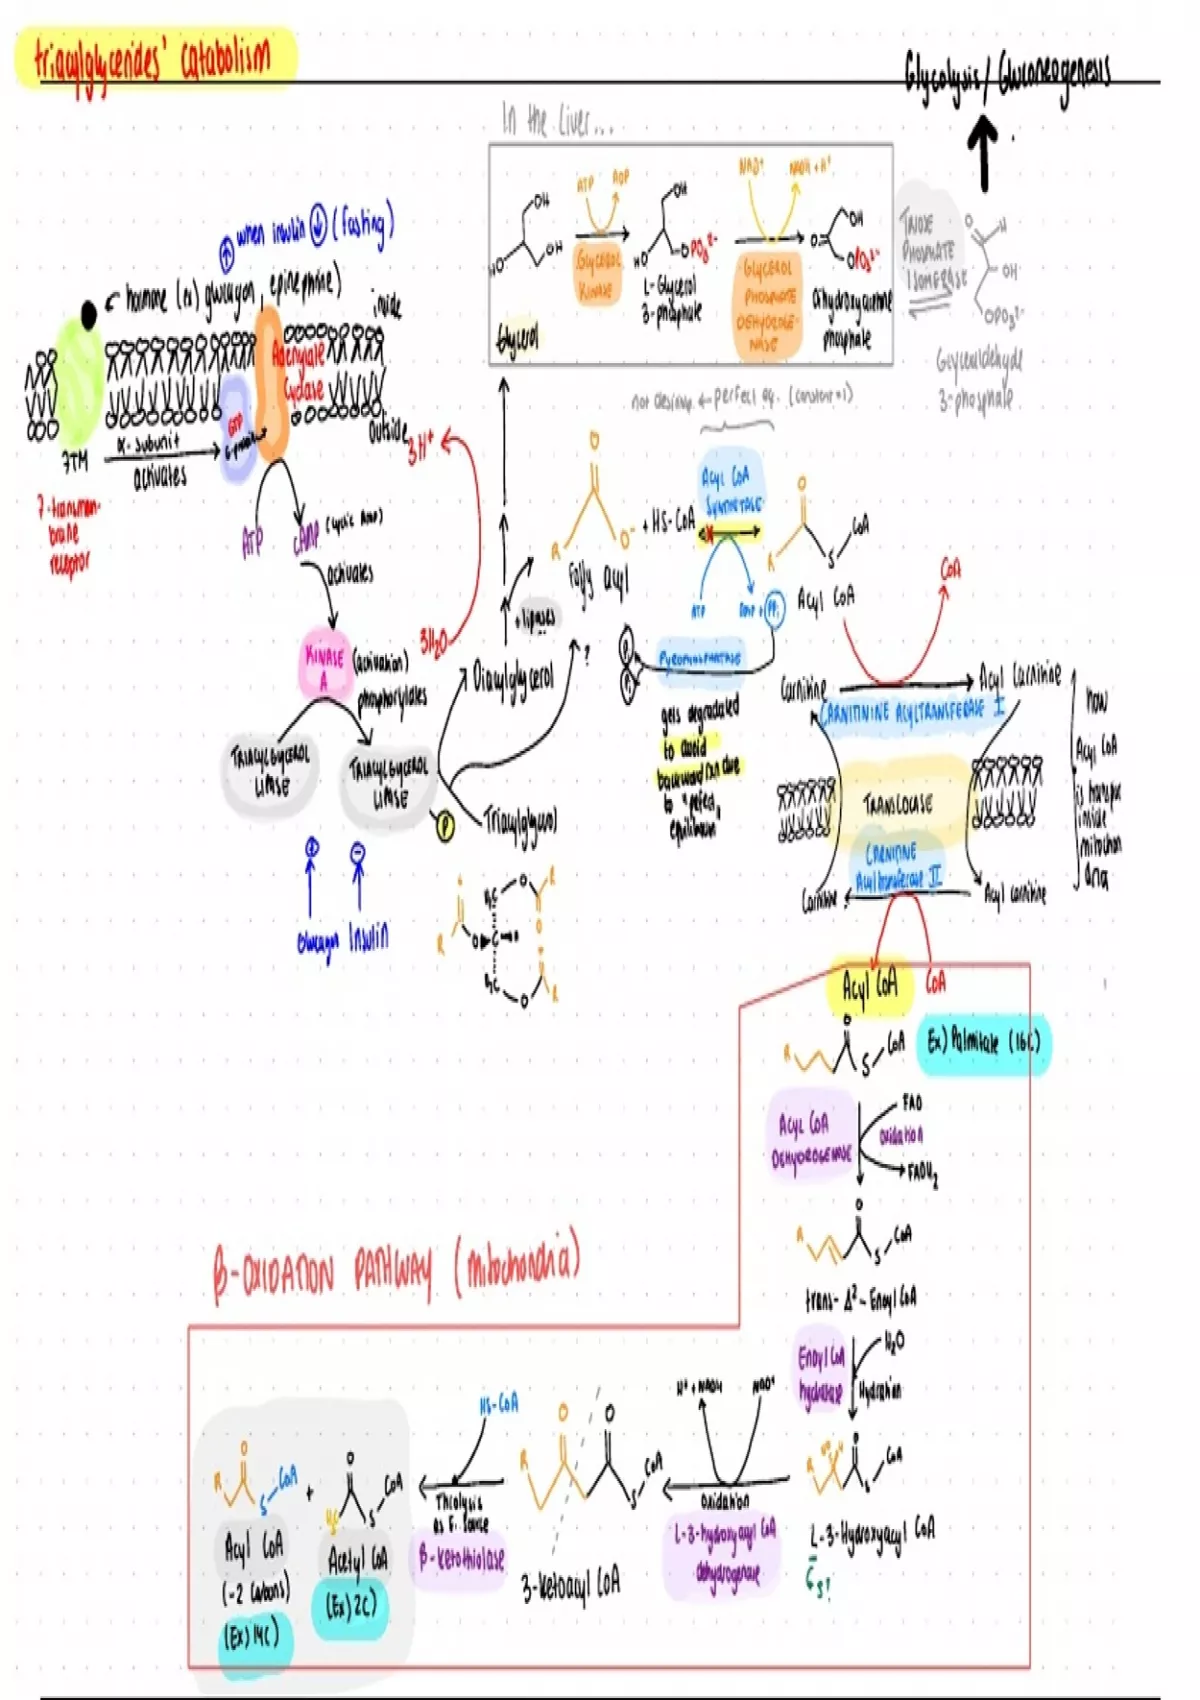 triacylglycerides' catabolism
Glycolysis / Gluconeogenesis
In the Liver...
ATP
ADP
NAD⁺
NADH + H⁺
OH
OH
HO
GLYCEROL
KINASE
OH
HO
OPO₃²⁻
L-Glycerol
3-phosphate
GLYCEROL
PHOSPHATE
DEHYDROGE-
NASE
OH
O
OPO₃²⁻
dihydroxyacetone
phosphate
Glycerol
TRIOSE
PHOSPHATE
ISOMERASE
O
H
OH
OPO₃²⁻
Glyceraldehyde
3-phosphate
↑ when insulin ↓ (fasting)
hormone (ex) glucagon, epinephrine)
inside
Adenylate
Cyclase
outside
GTP
G-protein
7TM
α-subunit
activates
7-transmem-
brane
receptor
ATP
cAMP (cyclic AMP)
activates
3H⁺
3H₂O
KINASE
A
(activation)
phosphorylates
TRIACYLGLYCEROL
LIPASE
TRIACYLGLYCEROL
LIPASE
P
+
-
Glucagon
Insulin
+ lipases
Diacylglycerol
?
Triacylglycerol
R
O
O
R
H₂C
O
O
C
R
O
H₂C
O
R
not desirup. ← perfect eq. (constant=1)
O
R
O⁻
Fatty acyl
+ HS-CoA
ACYL CoA
SYNTHETASE
x
ATP
AMP + PPi
O
R
S
CoA
Acyl CoA
PYROPHOSPHATASE
Pi
Pi
gets degraded
to avoid
backward rxn due
to "perfect
equilibrium"
CoA
Carnitine
Acyl Carnitine
CARNITININE ACYLTRANSFERASE I
TRANSLOCASE
CARNITINE
Acyltransferase II
Carnitine
Acyl carnitine
How
Acyl CoA
is transpo
inside
mitochon
dria
Acyl CoA
CoA
Ex) Palmitate (16C)
R
O
S
CoA
ACYL CoA
DEHYDROGENASE
FAD
oxidation
FADH₂
R
O
S
CoA
trans- Δ²- Enoyl CoA
β-OXIDATION PATHWAY (mitochondria)
Enoyl CoA
hydratase
H₂O
Hydration
R
O
S
CoA
L-3-Hydroxyacyl CoA
S!
H⁺ + NADH
NAD⁺
oxidation
L-3-hydroxyacyl CoA
dehydrogenase
R
O
O
S
CoA
3-ketoacyl CoA
HS-CoA
Thiolysis
β-ketothiolase
R
O
S
CoA
+
O
H₃C
S
CoA
Acyl CoA
(-2 carbons)
(Ex) 14C)
Acetyl CoA
(Ex) 2C)